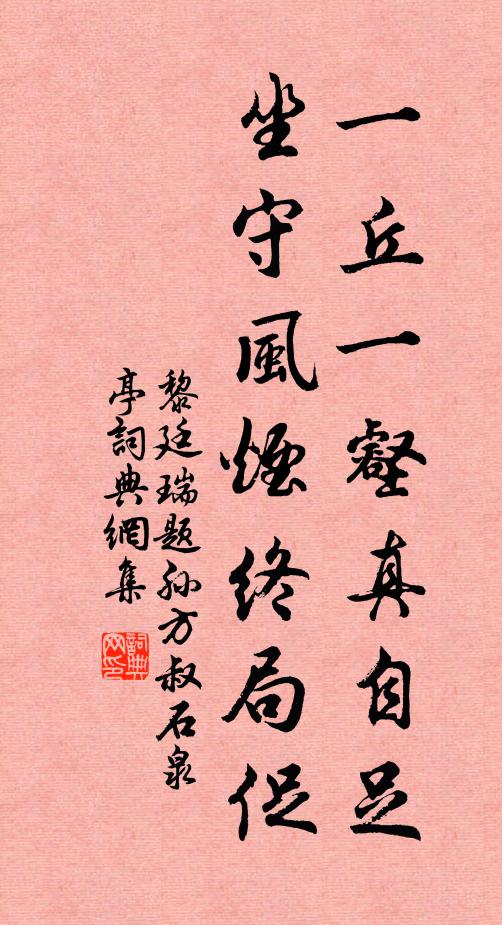 一丘一壑真自足
坐守風煙終局促
黎廷瑞题孙方叔石泉
亭詞典網集
詞典網印